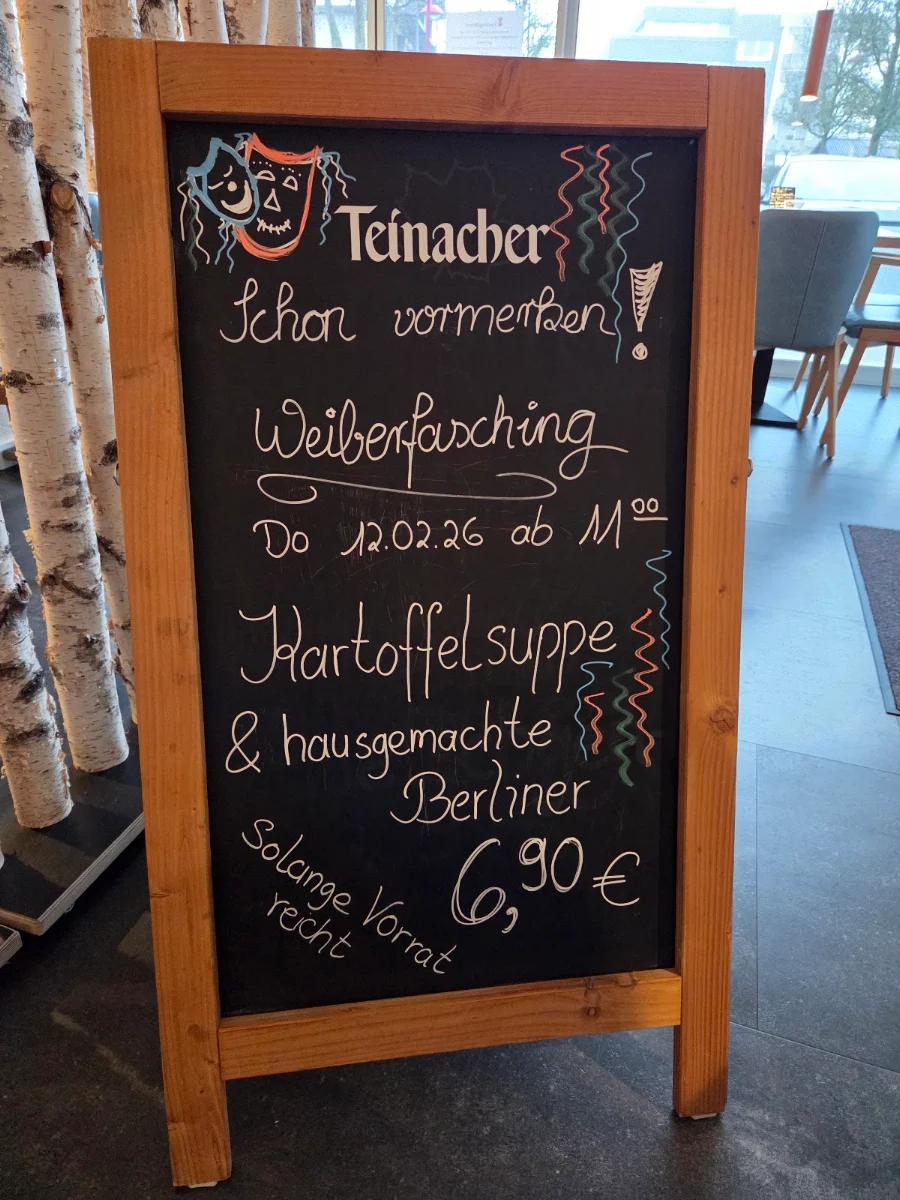 Teinacher
Schon vormerken!
Weiberfasching
Do 12.02.26 ab 11⁰⁰
Kartoffelsuppe
& hausgemachte
Berliner
6,90 €
Solange Vorrat
reicht